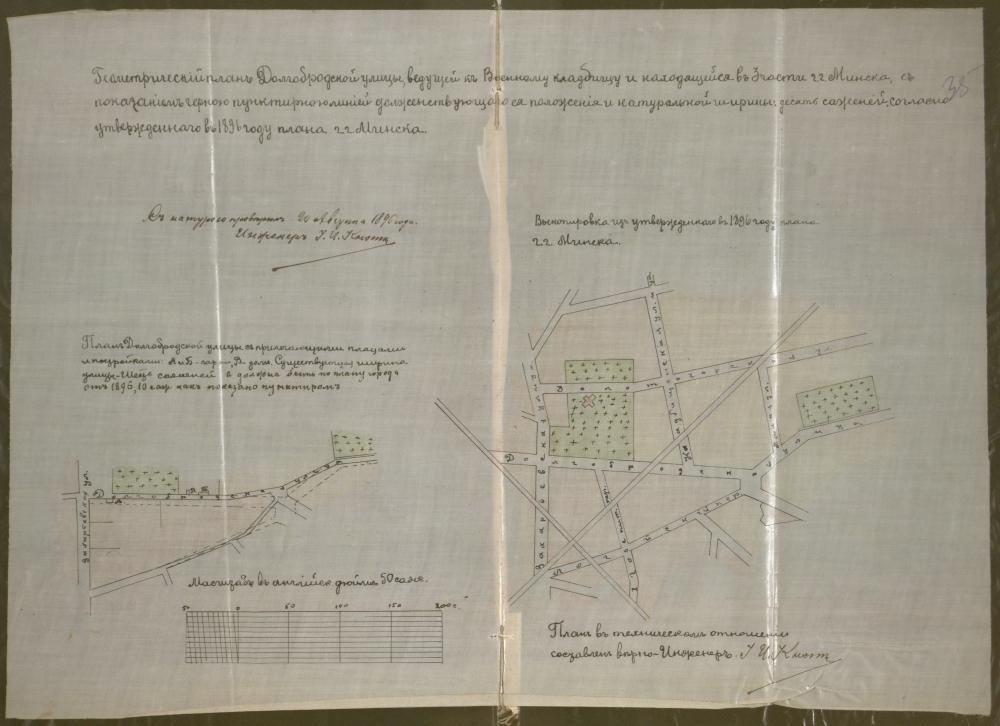 Геометрическій планъ Долгобродской улицы, ведущей къ Военному кладбищу и находящейся въ 3 части г. г. Минска, съ
показаніемъ черною пунктирною линіей долженствующаго ея положенія и натуральной ширины: десять саженей, согласно
утвержденнаго въ 1896 году плана г. г. Минска.
38
Съ натурою провѣрилъ 20 Августа 1896 года.
Инженеръ
Выкопировка изъ утвержденнаго въ 1896 году плана
г. г. Минска.
Планъ Долгобродской улицы съ прилегающими плацами
и постройками: А и Б - сараи, В - домъ. Существующая ширина
улицы - шесть саженей а должна быть по плану города
отъ 1896, 10 саж. какъ показано пунктиромъ
Захарьевская ул.
Долгобродская улица
Захарьевская улица
Долгобродская улица
Масштабъ въ англійск. дюймѣ 50 саж.
50 0 50 100 150 200 с.
Планъ въ техническомъ отношеніи
составленъ вѣрно - Инженеръ.